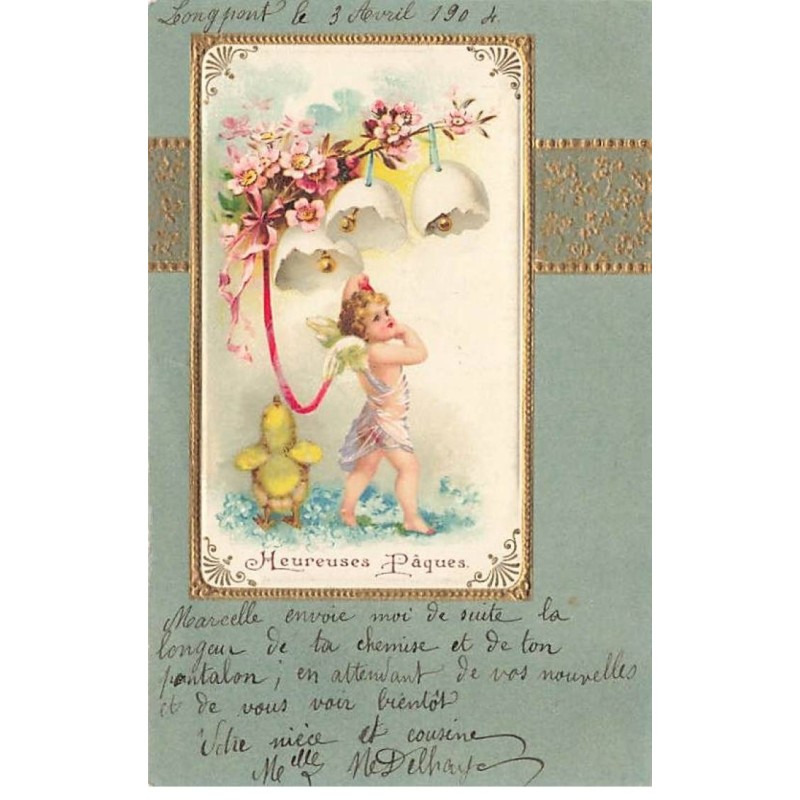 Longpont le 3 Avril 1904.
Heureuses Pâques.
Marcelle envoie moi de suite la
longeur de ta chemise et de ton
pantalon ; en attendant de vos nouvelles
et de vous voir bientôt
Votre nièce et cousine
Melle Delhaye